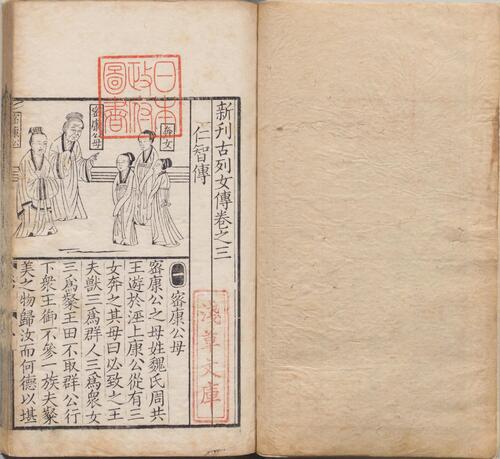 新刊古列女傳卷之三
仁智傳
奔女
密康公母
密康公
日本
政府
圖書
一 密康公母
密康公之母姓魏氏周共
王遊於涇上康公從有三
女奔之其母曰必致之王
夫獸三爲群人三爲衆女
三爲粲王田不取群公行
下衆王御不參一族夫粲
美之物歸汝而何德以堪
淺草文庫